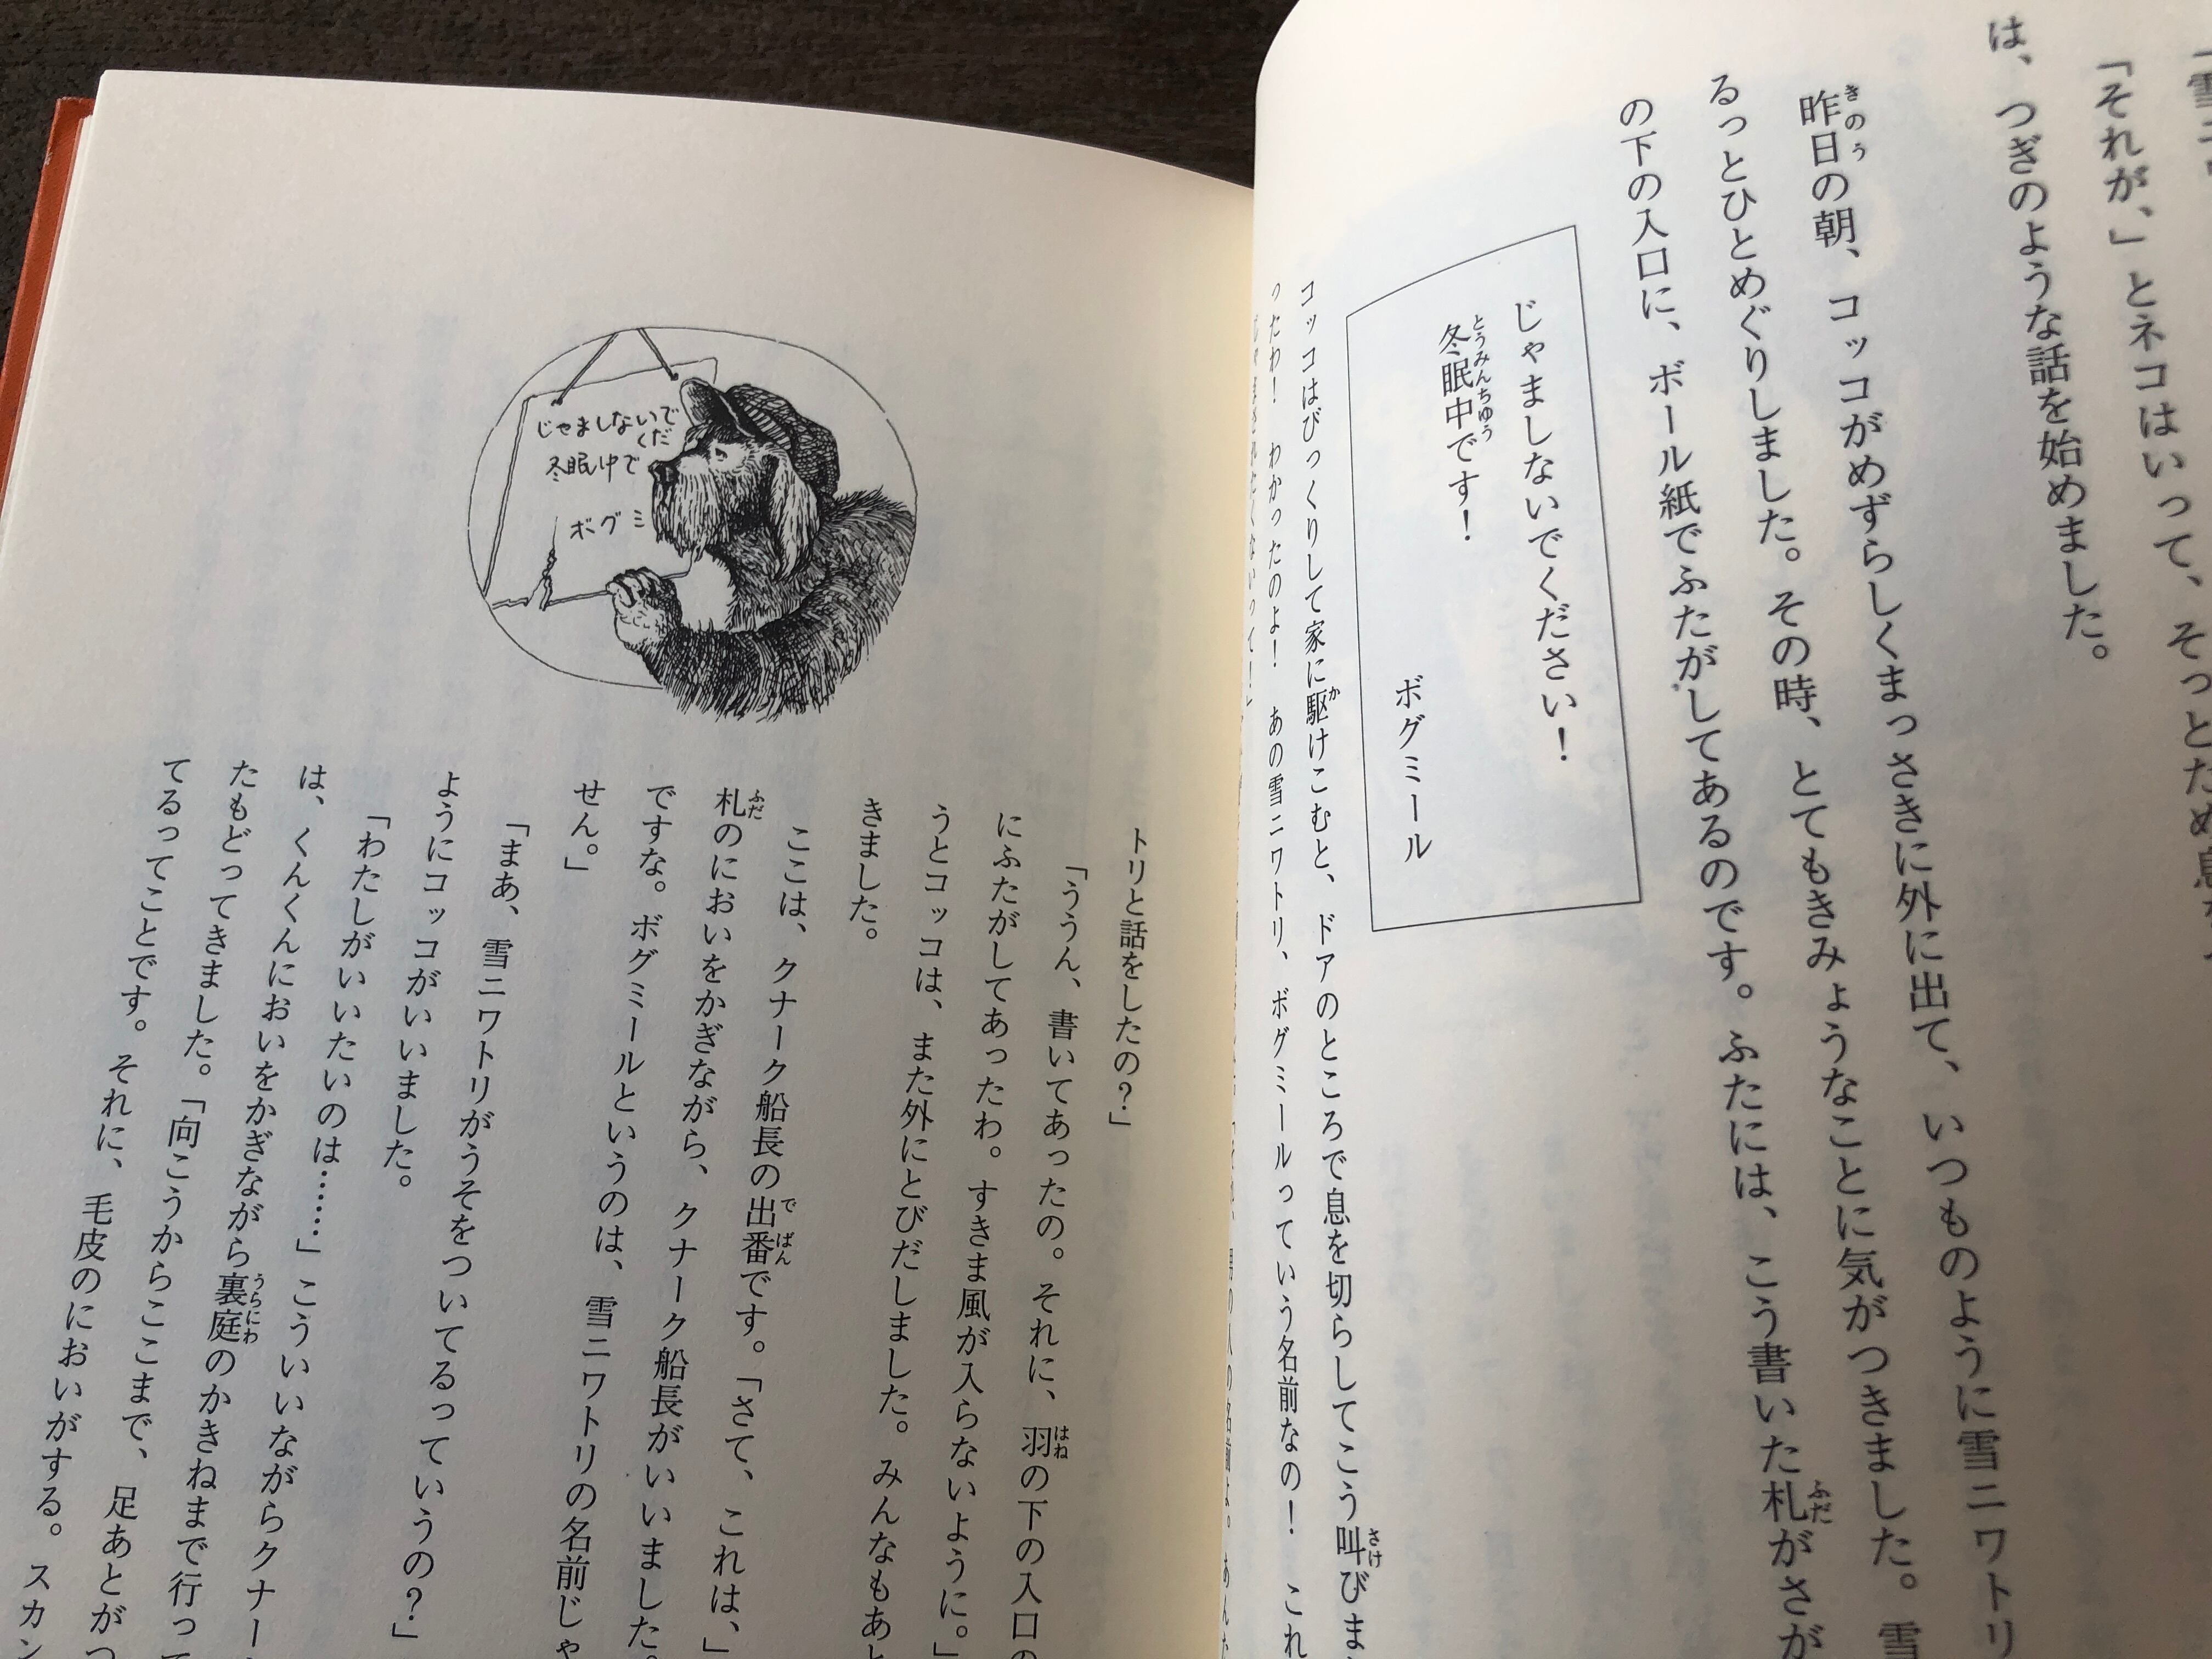 「それが、」とネコはいって、そっとため息
は、つぎのような話を始めました。
昨日の朝、コッコがめずらしくまっさきに外に出て、いつものように雪ニワトリ
るっとひとめぐりしました。その時、とてもきみょうなことに気がつきました。雪
の下の入口に、ボール紙でふたがしてあるのです。ふたには、こう書いた札がさが
じゃましないでください！
冬眠中です！
ボグミール
コッコはびっくりして家に駆けこむと、ドアのところで息を切らしてこう叫びま
ったわ！　わかったのよ！　あの雪ニワトリ、ボグミールっていう名前なの！　これ
じゃましないで
くだ
冬眠中で
ボグミ
トリと話をしたの？」
「ううん、書いてあったの。それに、羽の下の入口の
にふたがしてあったわ。すきま風が入らないように。」
うとコッコは、また外にとびだしました。みんなもあと
きました。
ここは、クナーク船長の出番です。「さて、これは、」
札のにおいをかぎながら、クナーク船長がいいました。
ですな。ボグミールというのは、雪ニワトリの名前じゃ
せん。」
「まあ、雪ニワトリがうそをついてるっていうの？」
ようにコッコがいいました。
「わたしがいいたいのは……」こういいながらクナー
は、くんくんにおいをかぎながら裏庭のかきねまで行って
たもどってきました。「向こうからここまで、足あとがつ
てるってことです。それに、毛皮のにおいがする。スカン